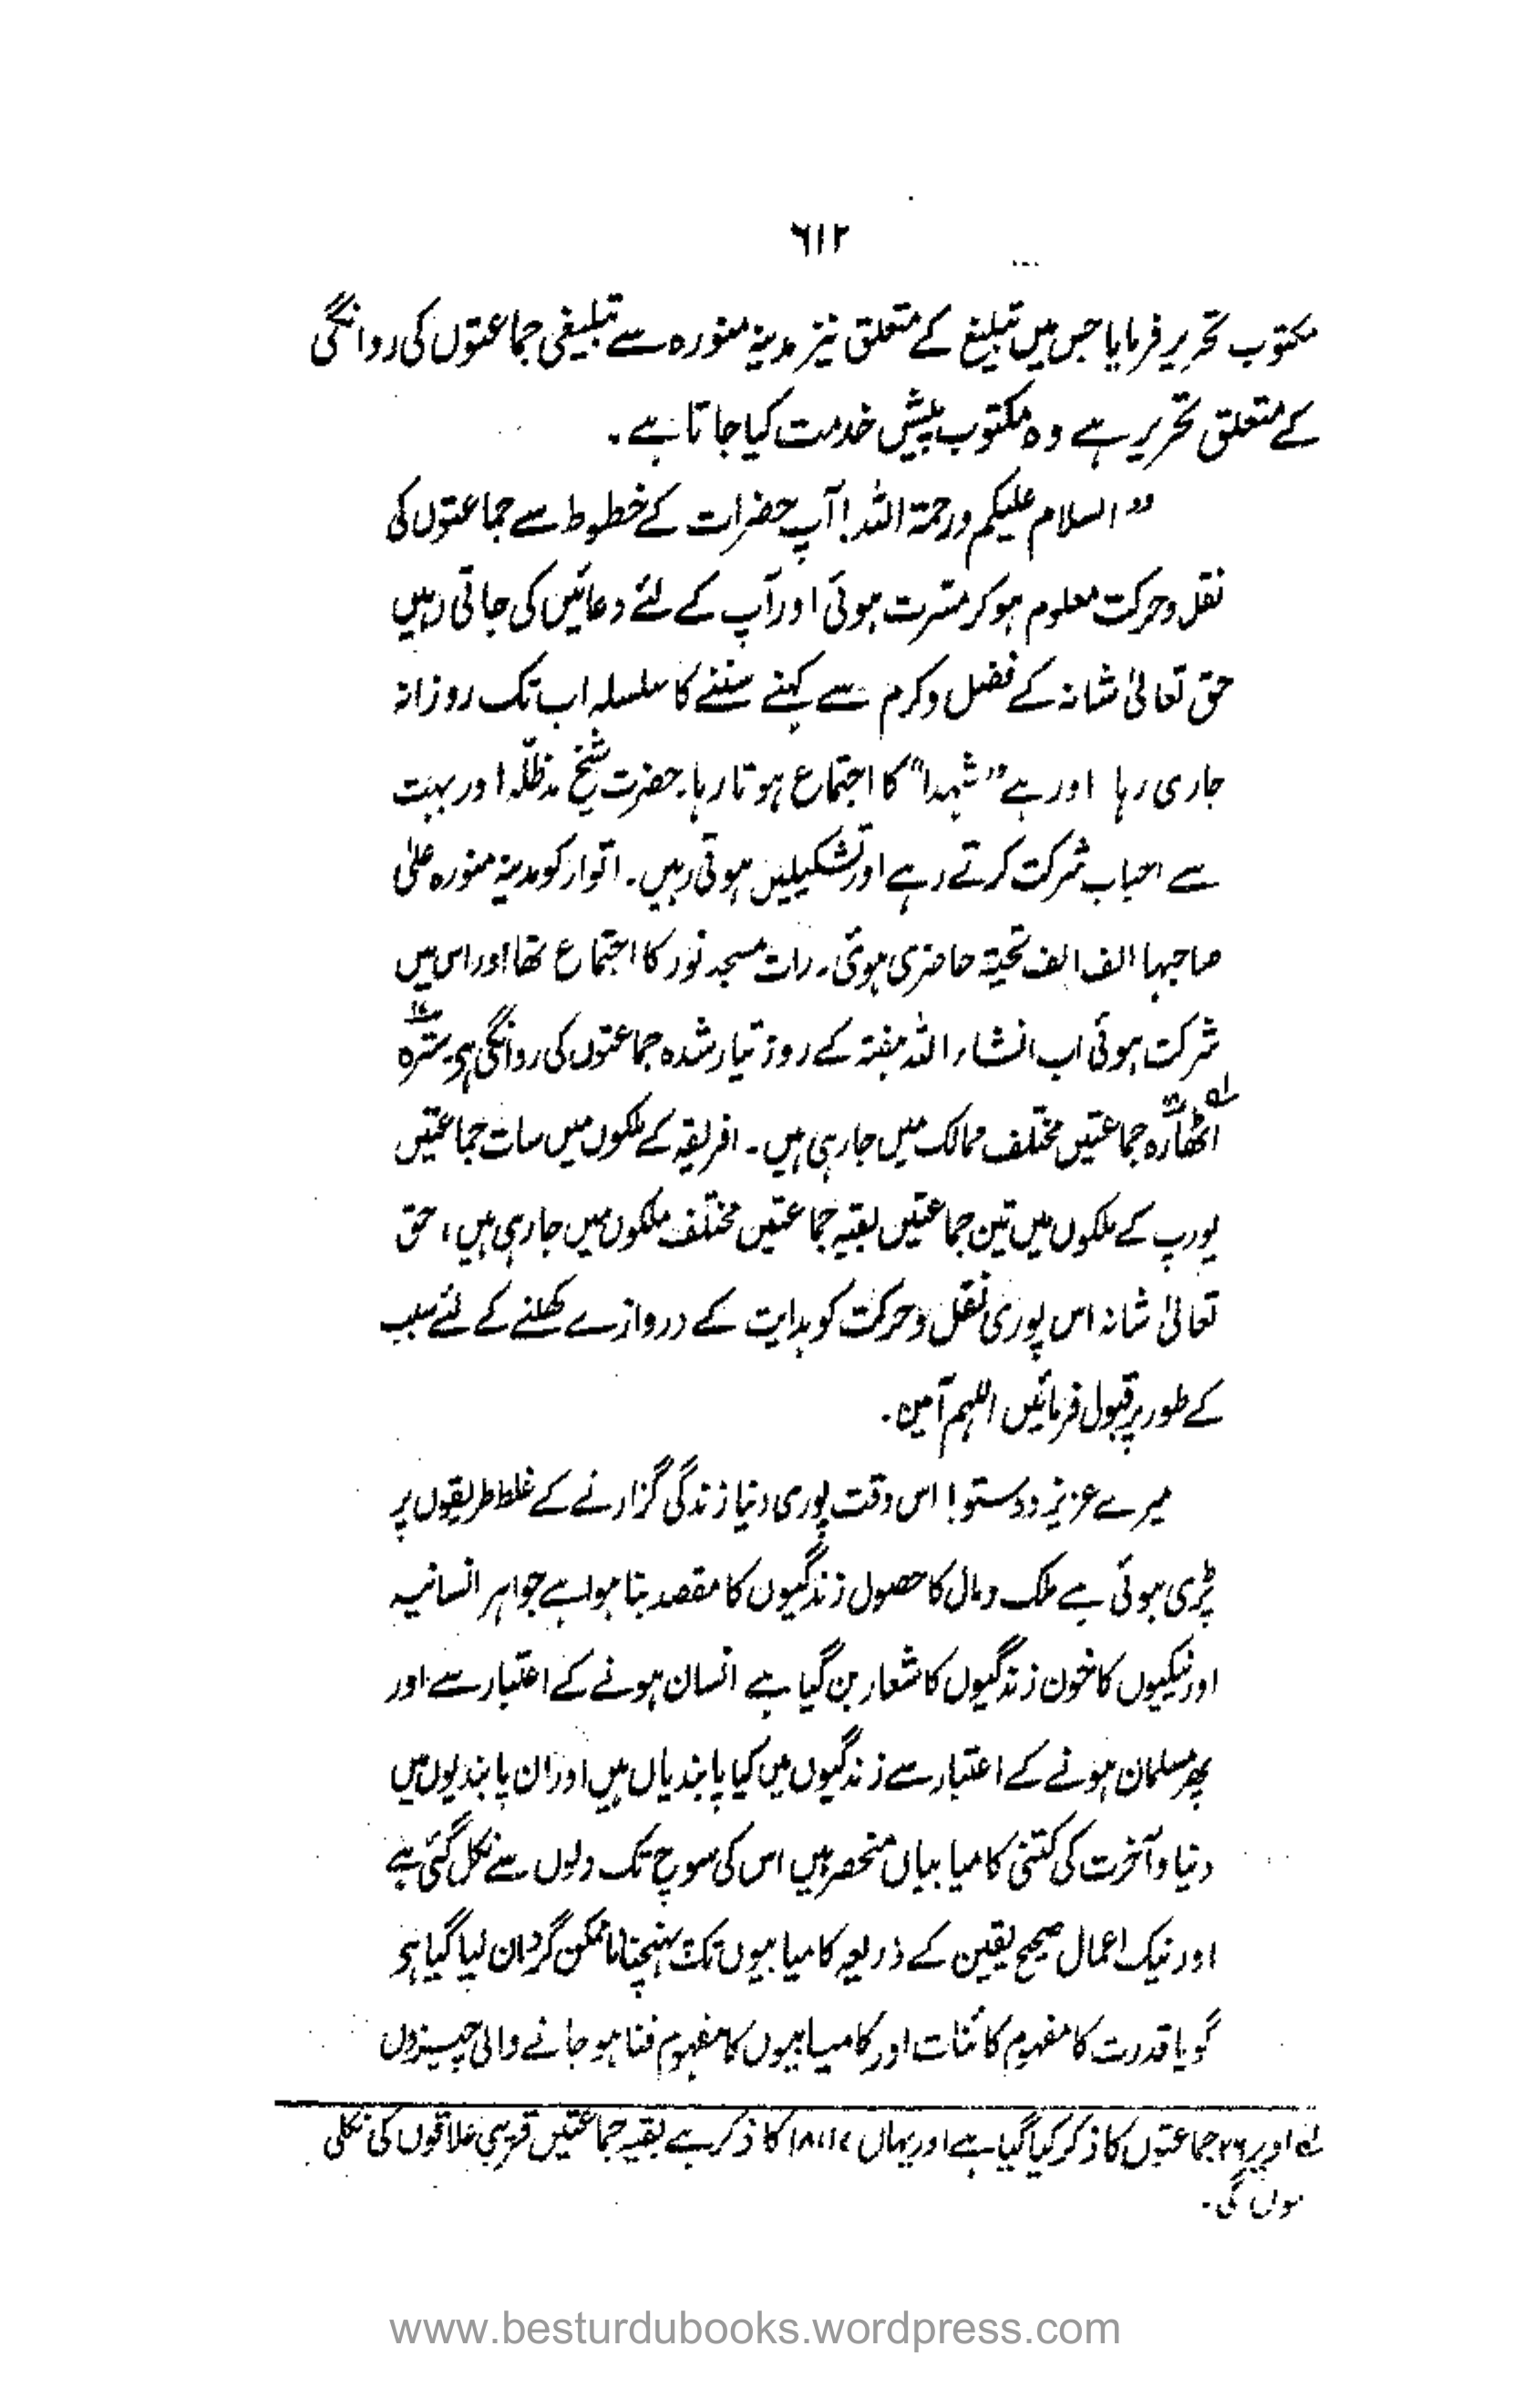 ٦١٢
مکتوب تحریر فرمایا جس میں تبلیغ کے متعلق نیز مدینہ منورہ سے تبلیغی جماعتوں کی روانگی
کے متعلق تحریر ہے وہ مکتوب پیش خدمت کیا جاتا ہے۔
"السلام علیکم ورحمۃ اللہ! آپ حضرات کے خطوط سے جماعتوں کی
نقل وحرکت معلوم ہو کر مسّرت ہوئی اور آپ کے لئے دعائیں کی جاتی رہیں
حق تعالیٰ شانہ کے فضل وکرم سے کہنے سننے کا سلسلہ اب تک روزانہ
جاری رہا اور ہے "شہدا" کا اجتماع ہوتا رہا۔ حضرت شیخ مدظلّہ اور بہت
سے احباب شرکت کرتے رہے اور تشکیلیں ہوتی رہیں۔ اتوار کو مدینہ منورہ علیٰ
صاحبہا الف الف تحیۃ حاضری ہوئی۔ رات مسجد نور کا اجتماع تھا اور اس میں
شرکت ہوئی اب انشاء اللہ ہفتہ کے روز تیار شدہ جماعتوں کی روانگی ہے۔ سترہ ۱۷
اٹھارہ ۱۸ لہ جماعتیں مختلف ممالک میں جا رہی ہیں۔ افریقہ کے ملکوں میں سات جماعتیں
یورپ کے ملکوں میں تین جماعتیں بقیہ جماعتیں مختلف ملکوں میں جا رہی ہیں، حق
تعالیٰ شانہ اس پوری نقل وحرکت کو ہدایت کے دروازے کھلنے کے لئے سبب
کے طور پر قبول فرمائیں اللہم آمین۔
میرے عزیز دوستو! اس وقت پوری دنیا زندگی گزارنے کے غلط طریقوں پر
پڑی ہوئی ہے ملک ومال کا حصول زندگیوں کا مقصد بنا ہوا ہے جواہر انسانیہ
اور نیکیوں کا خون زندگیوں کا شعار بن گیا ہے انسان ہونے کے اعتبار سے اور
پھر مسلمان ہونے کے اعتبار سے زندگیوں میں کیا پابندیاں ہیں اور ان پابندیوں میں
دنیا وآخرت کی کتنی کامیابیاں منحصر ہیں اس کی سوچ تک دلوں سے نکل گئی ہے
اور نیک اعمال صحیح یقین کے ذریعہ کامیابیوں تک پہنچنا ناممکن گردان لیا گیا ہے
گویا قدرت کا مفہوم کائنات اور کامیابیوں کا مفہوم فنا ہو جانے والی چیزوں
لہ اوپر ۲۶ جماعتوں کا ذکر کیا گیا ہے اور یہاں ۱۷،۱۸ کا ذکر ہے بقیہ جماعتیں قریبی علاقوں کی نکلی
ہوں گی۔
www.besturdubooks.wordpress.com